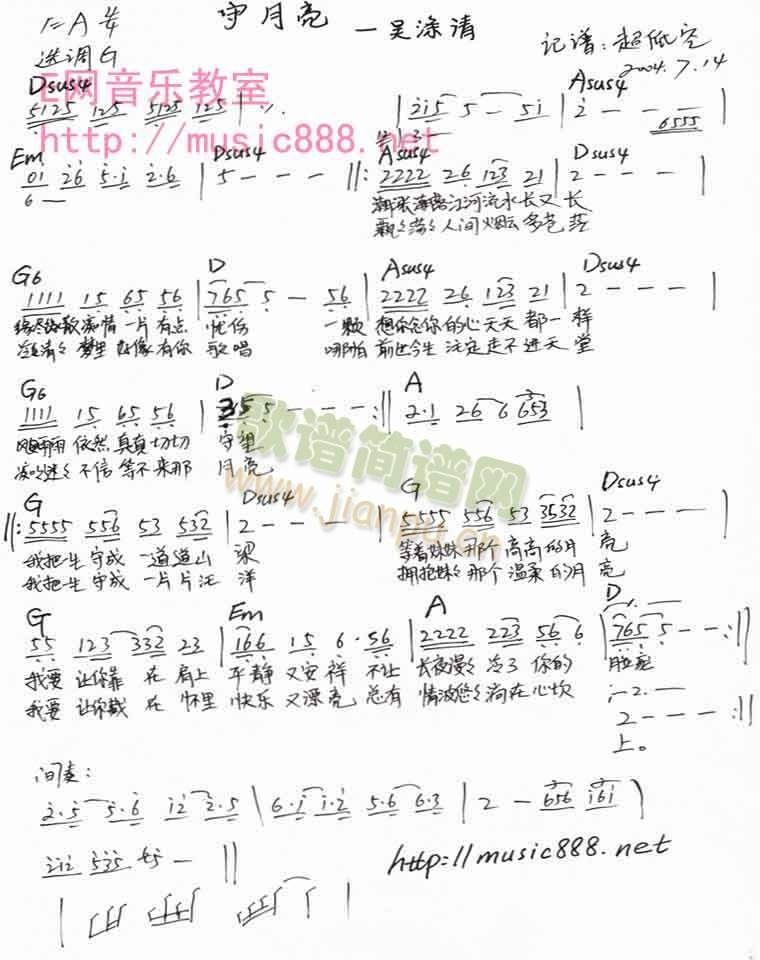 1=A 4/4
守月亮 一吴涤清
选调G
记谱:超低空
2004.7.14
E网音乐教室
http://music888.net
Dsus4 Asus4
5125 125 5125 125 | ·/. | 215 5 — 51 | 2 — — 6555 |
Em Dsus4 Asus4 Dsus4
01 26 5·1 2·6 | 5 — — — ||: 2222 26 123 21 | 2 — — — |
6 —
潮涨潮落江河流水长又长
飘飘荡荡人间烟云多苍茫
G6 D Asus4 Dsus4
1111 15 65 56 | 765 5 — 56 | 2222 26 123 21 | 2 — — — |
缘尽缘散痴情一片有点 忧伤 一颗 想你念你的心天天都一 样
冷冷清清梦里好像有你 歌唱 哪怕 前世今生注定走不进天 堂
G6 D A
1111 15 65 56 | 35 5 — — — :|| 2·1 26 6 653 |
风风雨雨依然真真切切 守望
不信等不来那 月亮
G Dsus4 G Dsus4
||: 5555 556 53 532 | 2 — — — | 5555 556 53 3532 | 2 — — — |
我把一生守成一道道山 梁 等着妹妹那个高高的月 亮
我把一生守成一片片汪 洋 拥抱妹妹那个温柔的月 亮
G Em A D
55 123 332 23 | 166 15 6·56 | 2222 223 56 6 | 765 5 — — :||
我要让你靠在肩上 平静又安祥 不让 长夜漫漫冷了你的 脸庞
我要让你戴在怀里 快乐又漂亮 总有 情波悠悠淌在心坎 上。
1—2.
2 — — — :||
间奏:
2·5 5·6 12 2·5 | 6·1 1·2 5·6 6·3 | 2 — 656 161 |
212 535 65 — ||
http://music888.net
歌谱简谱网
www.jianpu.cn